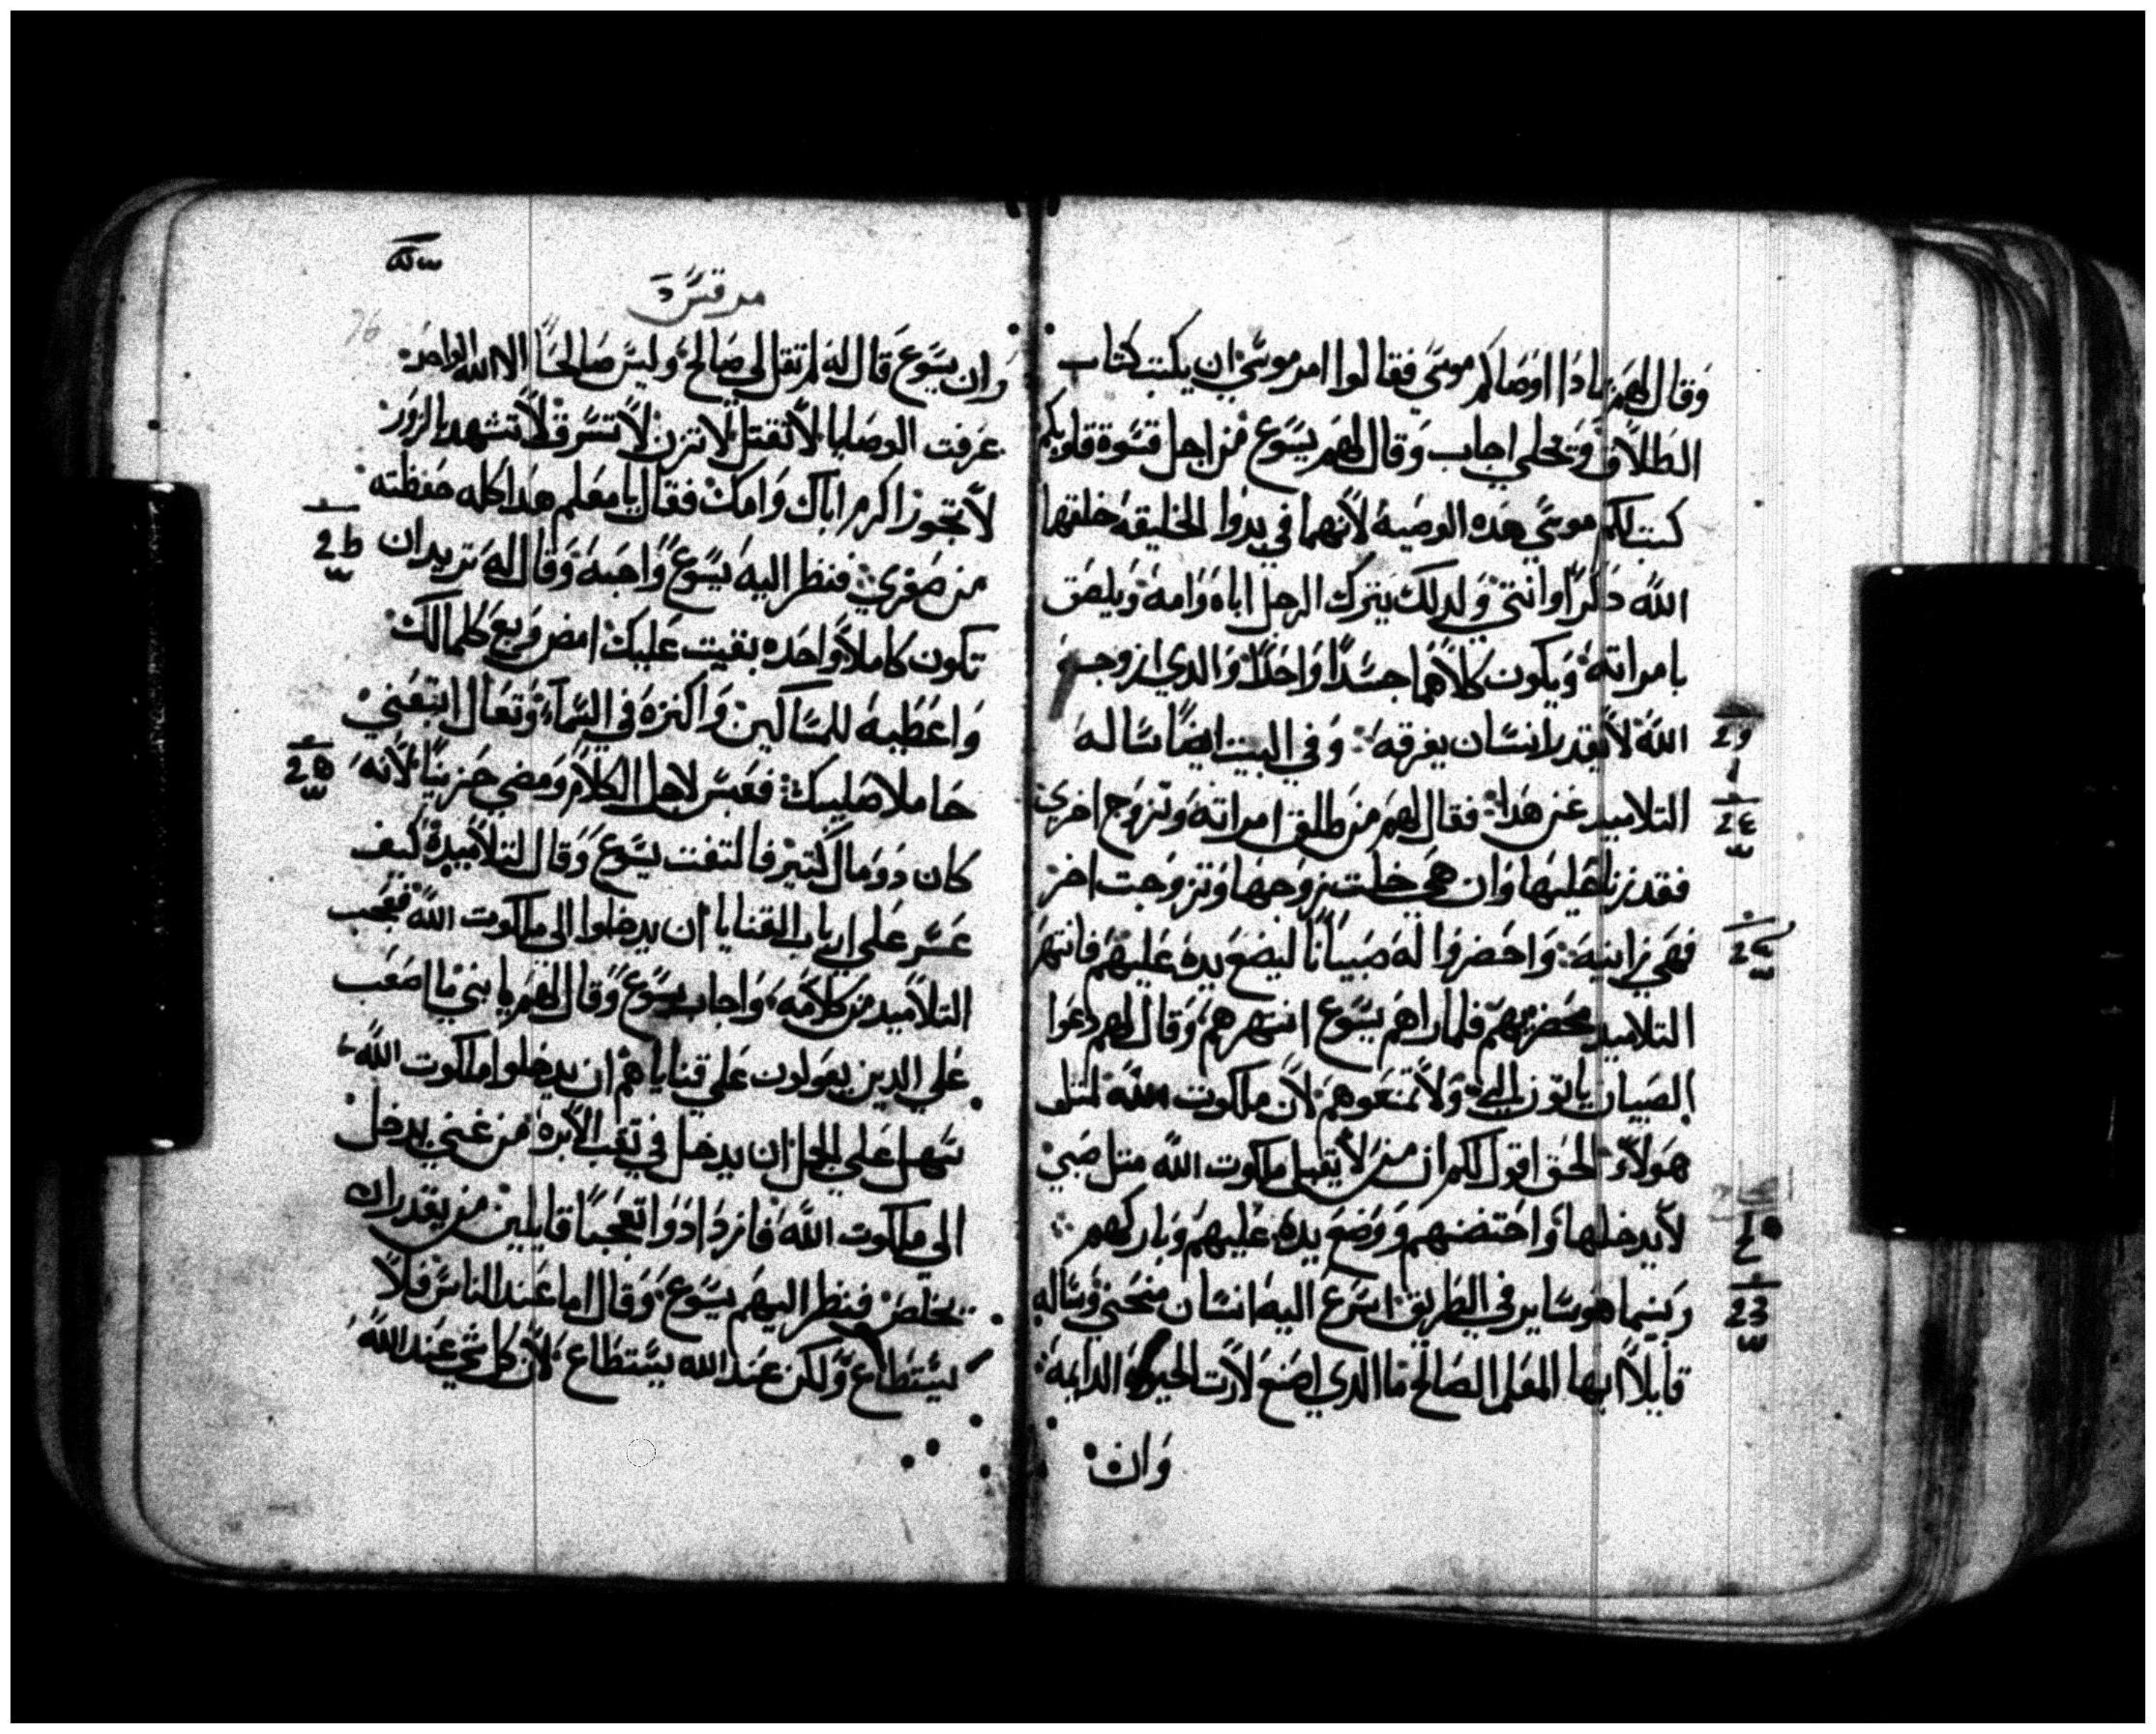 وقال لهم بمادا اوصاكم موسى فقالوا امر موسي ان يكتب كتاب
الطلاق وتخلي اجاب وقال لهم يسوع من اجل قسوة قلوبكم
كتب لكم موسي هده الوصية لانهما في بدوا الخليقه خلقهما
الله دكرا وانتي ولدلك يترك الرجل اباه وامه ويلصق
بامراته ويكون كلاهما جسدا واحدا والدي ازوجه
الله لا يقدر انسان يفرقه وفي البيت ايضا ساله
التلاميد عن هدا فقال لهم من طلق امراته وتزوج اخري
فقد زنا عليها وان هي خلت زوجها وتزوجت اخر
فهي زانيه واحضروا له صبيانا ليضع يده عليهم فانتهر
التلاميد محضريهم فلما راهم يسوع انتهرهم وقال لهم دعوا
الصبيان ياتون الي ولا تمنعوهم لان ملكوت الله لمتل
هولاء الحق اقول لكم ان من لا يقبل ملكوت الله متل صبي
لا يدخلها واحتضنهم ووضع يده عليهم وباركهم
وبينما هو ساير في الطريق اسرع اليه انسان منحني وساله
قايلا ايها المعلم الصالح ما الدي اصنع لارت الحيوه الدايمه
وان
مرقس
وان يسوع قال له لم تقل لي صالح وليس صالحا الا الله الواحد
عرفت الوصايا لا تقتل لا تزن لا تسرق لا تشهد بالزور
لا تجور اكرم اباك وامك فقال يا معلم هدا كله حفظته
من صغري فنظر اليه يسوع واحبه وقال له تريد ان
تكون كاملا واحده بقيت عليك امض وبع كلما لك
واعطيه للمساكين واكنزه في السماء وتعال اتبعني
حاملا صليبك فعبس لاجل الكلام ومضي حزينا لانه
كان دو مال كتير فالتفت يسوع وقال لتلاميده كيف
عسر علي ارباب القنايا ان يدخلوا الى ملكوت الله فعجب
التلاميد من كلامه واجاب يسوع وقال لهم يا بني ما اصعب
علي الدين يعولون علي قناياهم ان يدخلوا ملكوت الله
سهل علي الجمل ان يدخل في تقب الابره من غني يدخل
الى ملكوت الله فازدادوا تعجبا قايلين من يقدر ان
يخلص فنظر اليهم يسوع وقال اما عند الناس فلا
يستطاع ولكن عند الله يستطاع لان كل شي عند الله